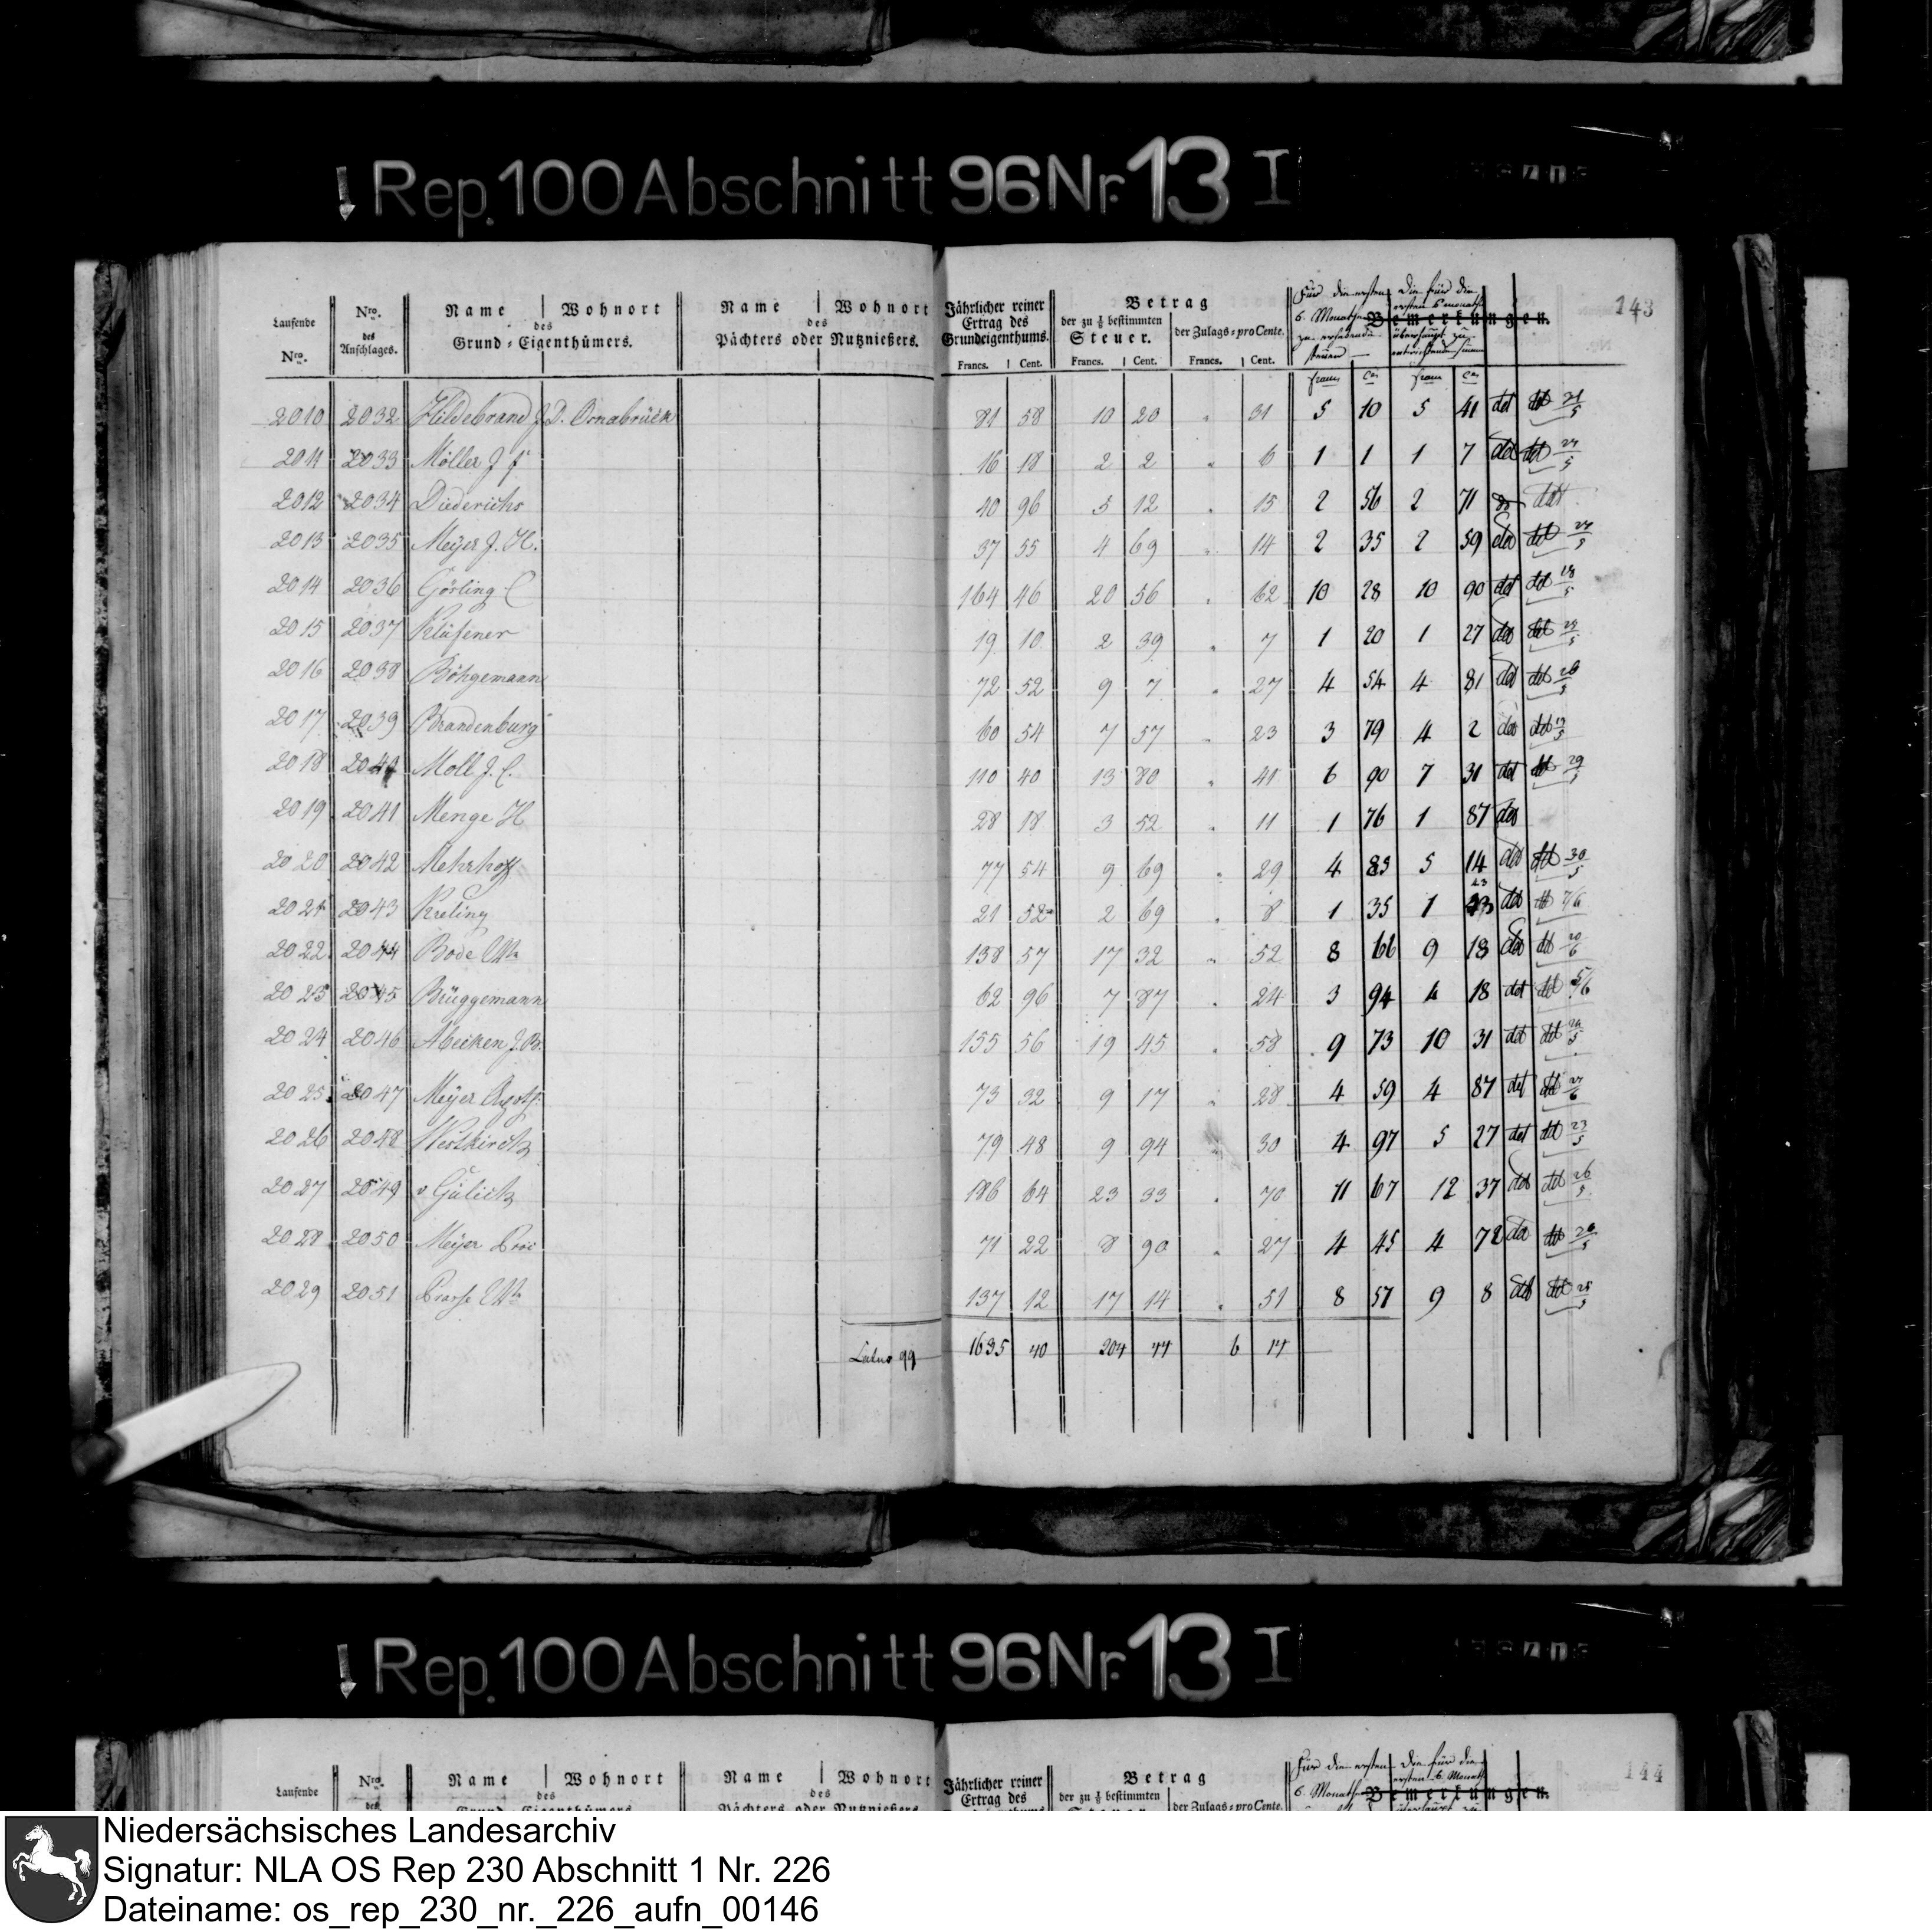 Rep. 100 Abschnitt 96 Nr. 13 I
143
Laufende Nro.
Nro. des Anschlages.
Name | Wohnort
des
Grund-Eigenthümers.
Name | Wohnort
des
Pächters oder Nutznießers.
Jährlicher reiner Ertrag des Grundeigenthums.
Francs. | Cent.
Betrag
der zu 1/8 bestimmten Steuer.
Francs. | Cent.
der Zulags-pro Cente.
Francs. | Cent.
Für die ersten 6. Monathe zu erhebende Steuer
Die für die ersten 6 monathe überhaupt zu entrichtende Summe
Bemerkungen.
2010 2032 Hildebrand J. D. Osnabrück 81 58 10 20 " 31 5 10 5 41 ddt ddt 21/5
2011 2033 Möller J f 16 18 2 2 " 6 1 1 1 7 ddt ddt 24/5
2012 2034 Diederichs 40 96 5 12 " 15 2 56 2 71 ddt
2013 2035 Meyer J. H. 37 55 4 69 " 14 2 35 2 59 ddt ddt 24/5
2014 2036 Görling C 164 46 20 56 " 62 10 28 10 90 ddt ddt 18/5
2015 2037 Klüsener 19 10 2 39 " 7 1 20 1 27 ddt ddt 28/5
2016 2038 Böhgemann 72 52 9 7 " 27 4 54 4 81 ddt ddt 26/5
2017 2039 Brandenburg 60 54 7 57 " 23 3 79 4 2 ddt ddt 19/5
2018 2040 Moll J. C. 110 40 13 80 " 41 6 90 7 31 ddt ddt 29/5
2019 2041 Menge H 28 18 3 52 " 11 1 76 1 87 ddt
2020 2042 Mehrhoff 77 54 9 69 " 29 4 85 5 14 ddt ddt 30/5
2021 2043 Kreling 21 52 2 69 " 8 1 35 1 43 ddt ddt 7/6
2022 2044 Bode Wwe 138 57 17 32 " 52 8 66 9 18 ddt ddt 20/6
2023 2045 Brüggemann 62 96 7 87 " 24 3 94 4 18 ddt ddt 5/6
2024 2046 Abeken J. B. 155 56 19 45 " 58 9 73 10 31 ddt ddt 24/5
2025 2047 Meyer 73 32 9 17 " 28 4 59 4 87 ddt ddt 27/6
2026 2048 Westkirch 79 48 9 94 " 30 4 97 5 27 ddt ddt 23/5
2027 2049 v Gülich 186 64 23 33 " 70 11 67 12 37 ddt ddt 26/5
2028 2050 Meyer 71 22 8 90 " 27 4 45 4 72 ddt ddt 26/5
2029 2051 Prasse Wwe 137 12 17 14 " 51 8 57 9 8 ddt ddt 25/5
Latus 99 1635 40 204 44 6 14
Rep. 100 Abschnitt 96 Nr. 13 I
144
Laufende
Nro. des
Name | Wohnort
des
Grund-Eigenthümers
Name | Wohnort
des
Pächters oder Nutznießers
Jährlicher reiner Ertrag des
Betrag
der zu 1/8 bestimmten
der Zulags-pro Cente.
Für die ersten 6. Monathe
Die für die ersten 6. Monath überhaupt zu
Bemerkungen.
Niedersächsisches Landesarchiv
Signatur: NLA OS Rep 230 Abschnitt 1 Nr. 226
Dateiname: os_rep_230_nr._226_aufn_00146